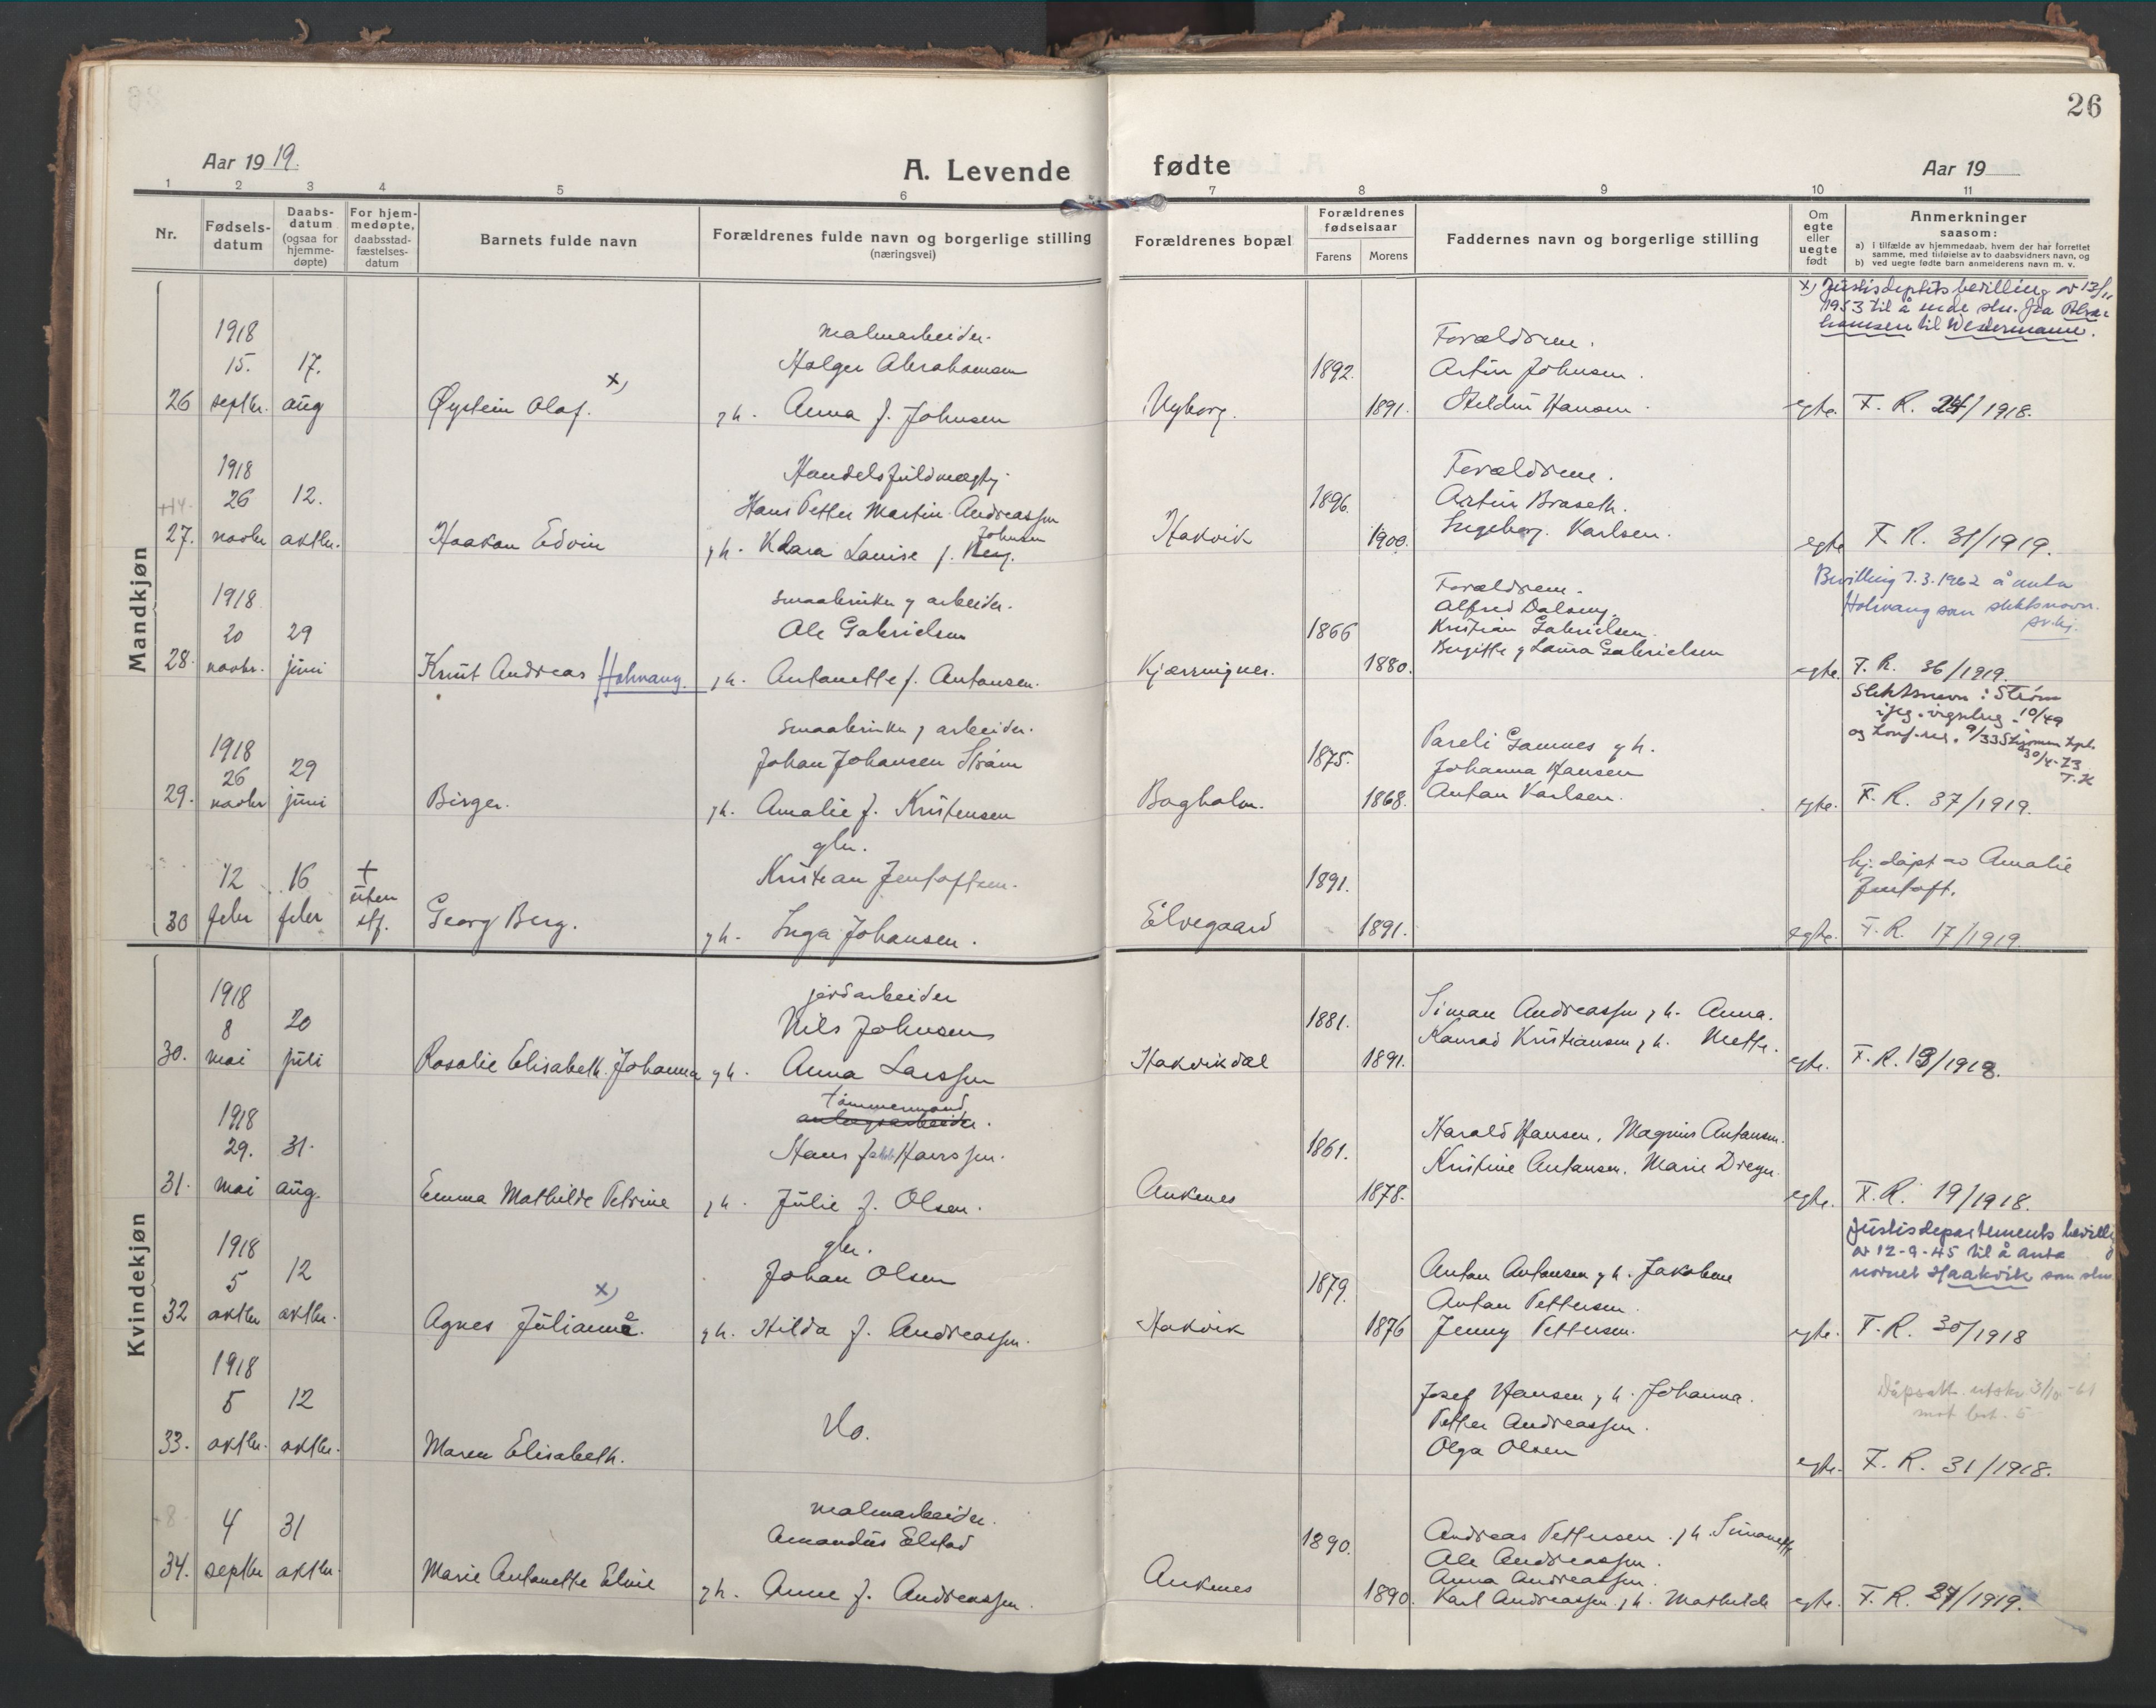 26
Aar 1919.
A. Levende
fødte
Aar 19
1 2 3 4 5 6 7 8 9 10 11
Nr.
Fødsels-
datum
Daabs-
datum
(ogsaa for
hjemme-
døpte)
For hjem-
medøpte,
daabsstad-
fæstelses-
datum
Barnets fulde navn
Forældrenes fulde navn og borgerlige stilling
(næringsvei)
Forældrenes bopæl
Forældrenes
fødselsaar
Farens Morens
Faddernes navn og borgerlige stilling
Om
egte
eller
uegte
født
Anmerkninger
saasom:
a) i tilfælde av hjemmedaab, hvem der har forrettet
samme, med tilføielse av to daabsvidners navn, og
b) ved uegte fødte barn anmelderens navn m. v.
Mandkjøn
x) Justisdeptets bevilling av 13/11
1953 til å endre sln. fra Abra-
hamsen til Westermann.
26
1918
15.
septbr.
17.
aug
Øystein Olaf. x)
malmarbeider.
Holger Abrahamsen
g h. Anna f. Johnsen
Nyborg.
1892.
1891.
Forældrene.
Artur Johnsen.
Heldin Hansen.
egte.
F. R. 24/1918.
27.
1918
26
novbr
12.
oktbr.
Haakon Edvin
Handelsfuldmægtig
Hans Petter Martin Andreassen
Johnsen
g h. Klara Louise f.
Hakvik
1896.
1900.
Forældrene.
Artur Braseth.
Ingeborg Karlsen.
egte
F. R. 31/1919.
28.
1918
20
novbr.
29
juni
Knut Andreas Holmvang.
smaabruker g arbeider.
Ole Gabrielsen
g h. Antonette f. Antonsen.
Kjærringnes.
1866
1880.
Forældrene.
Alfred
Kristian Gabrielsen.
Birgitte g Laura Gabrielsen
egte.
Bevilling 7.3.1962 å anta
Holmvang som slektsnavn.
F. R. 36/1919.
29.
1918
26
novbr
29
juni
Birger.
smaabruker g arbeider.
Johan Johansen Strøm
g h. Amalie f. Kristensen
Bogholm.
1875.
1868.
Pareli Gamnes g h.
Johanna Hansen
Anton Karlsen.
egte.
Slektsnavn: Strøm
10/49
og konf.
F. R. 37/1919.
30
12
febr
16
febr
+
uten
stf.
Georg Berg.
gbr.
Kristian Jentoftsen.
g h. Inga Johansen.
Elvegaard
1891.
1891.
egte.
hj. døpt av Amalie
Jentoft.
F. R. 17/1919.
Kvindekjøn
30.
1918
8
mai
20
juli
Rosalie Elisabeth Johanna
jordarbeider
Nils Johnsen
g h. Anna Larssen
Hakvikdal
1881.
1891.
Simon Andreassen g h. Anna.
Konrad Kristiansen g h. Mette.
egte.
F. R. 13/1918.
31.
1918
29.
mai
31.
aug.
Emma Mathilde Petrine
tømmermand
anlegsarbeider.
Hans Hanssen.
g h. Julie f. Olsen.
Ankenes
1861.
1878.
Harald Hansen, Magnus Antonsen.
Kristine Antonsen, Marie Dreyer.
egte.
F. R. 19/1918.
32
1918
5
oktbr
12
oktbr.
Agnes Julianne. x)
gbr.
Johan Olsen
g h. Hilda f. Andreassen.
Hakvik
1879.
1876
Anton Antonsen g h. Jakobine
Anton Pettersen.
Jenny Pettersen.
egte.
Justisdepartements bevillig
av 12-9-45 til å anta
navnet Haakvik som sln.
F. R. 30/1918
33.
1918
5
oktbr.
12
oktbr.
Maren Elisabeth.
Do.
Josef Hansen g h. Johanna.
Petter Andreassen.
Olga Olsen
egte.
Dåpsatt. utskr 3/10-61
F. R. 31/1918.
34.
4
septbr
31
oktbr.
Marie Antonette Elvie
malmarbeider.
Amandus Elstad
g h. Anne f. Andreassen.
Ankenes
1890.
1890.
Andreas Pettersen g h. Simonette
Ole Andreassen.
Anna Andreassen.
Karl Andreassen g h. Mathilde
egte.
F. R. 27/1919.